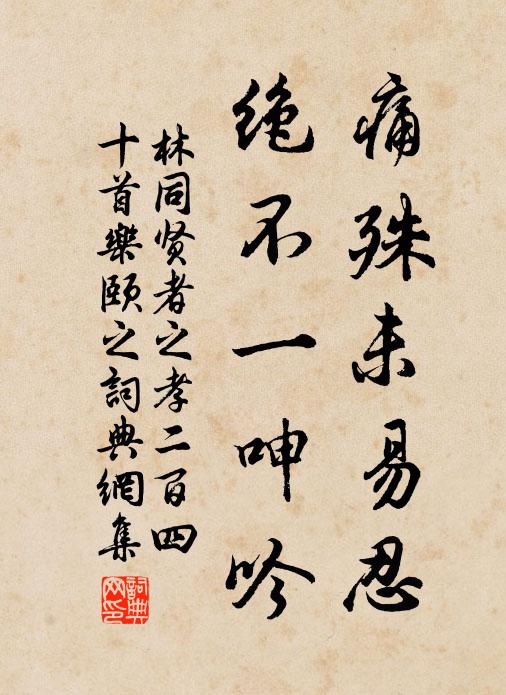 痛殊未易忍
绝不一呻吟
林同贤者之孝二百四
十首樂頤之詞典網集
詞典
网印